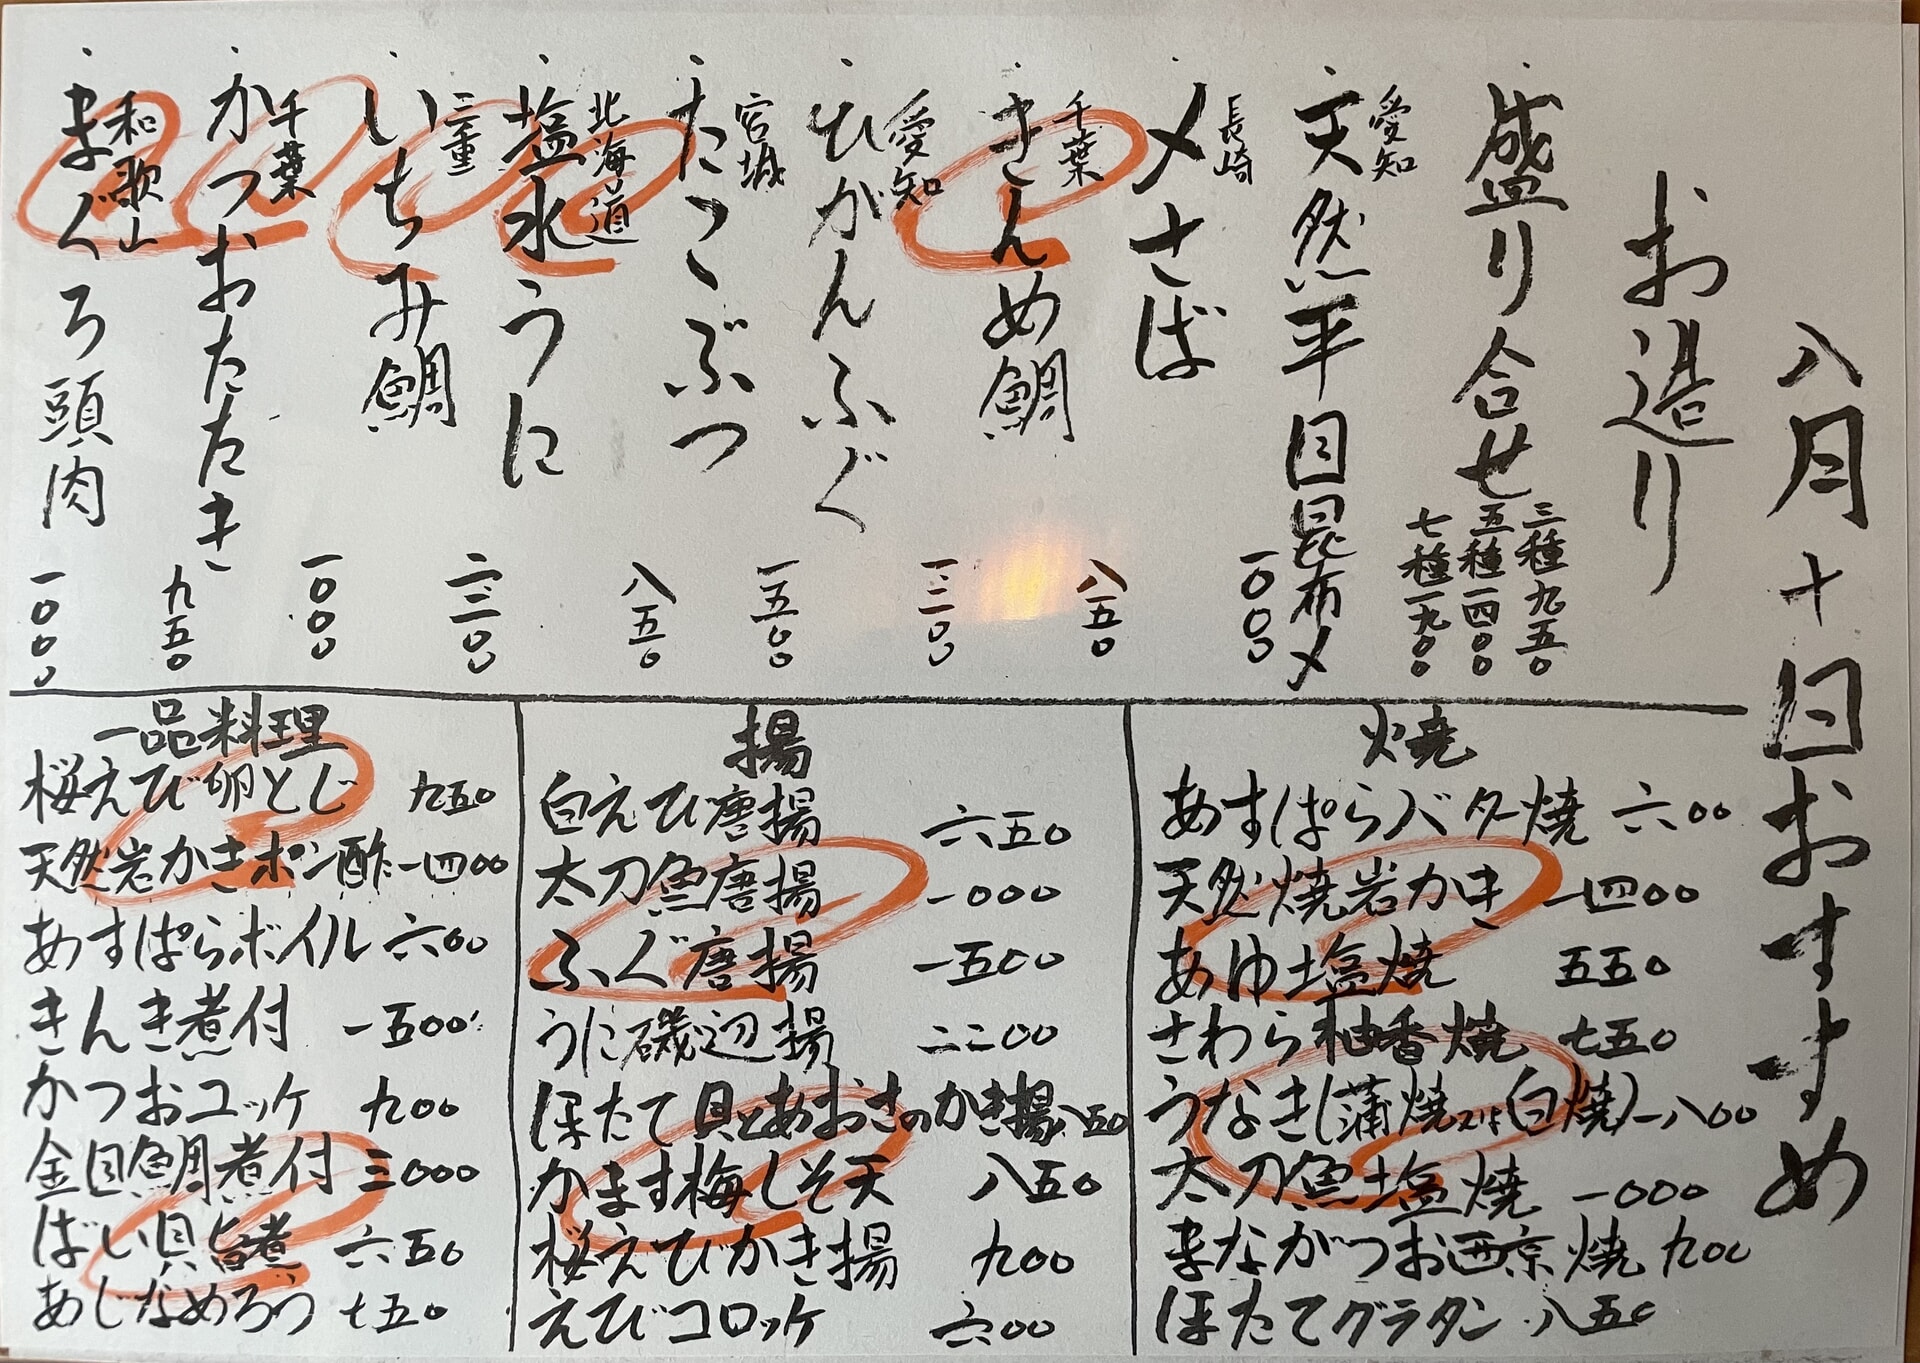 八月十日おすすめ
お造り
盛り合せ 三種九五〇
五種一四〇〇
七種一九〇〇
愛知
天然平目昆布〆 一〇〇〇
長崎
〆さば 八五〇
千葉
きんめ鯛 一三〇〇
愛知
ひがんふぐ 一五〇〇
宮城
たこぶつ 八五〇
北海道
塩水うに
三重
いちみ鯛 一〇〇〇
千葉
かつおたたき 九五〇
和歌山
まぐろ頭肉 一〇〇〇
焼
あすぱらバター焼 六〇〇
天然焼岩かき 一四〇〇
あゆ塩焼 五五〇
さわら柚香焼 七五〇
うなき(蒲焼又は白焼)一八〇〇
太刀魚塩焼 一〇〇〇
まながつお西京焼 九〇〇
ほたてグラタン 八五〇
揚
白えび唐揚 六五〇
太刀魚唐揚 一〇〇〇
ふぐ唐揚 一五〇〇
うに磯辺揚 二二〇〇
ほたて貝とあおさのかき揚八五〇
かます梅しそ天 八五〇
桜えびかき揚 九〇〇
えびコロッケ 六〇〇
一品料理
桜えび卵とじ 九五〇
天然岩かきポン酢 一四〇〇
あすぱらボイル 六〇〇
きんき煮付 一五〇〇
かつおユッケ 九〇〇
金目鯛煮付 三〇〇〇
ばい貝旨煮 六五〇
あじなめろう 七五〇